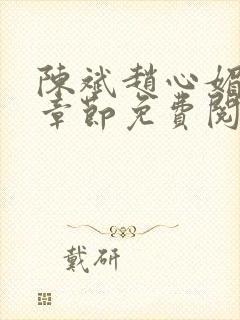 陳斌趙心媚
章節免費閱
戴研